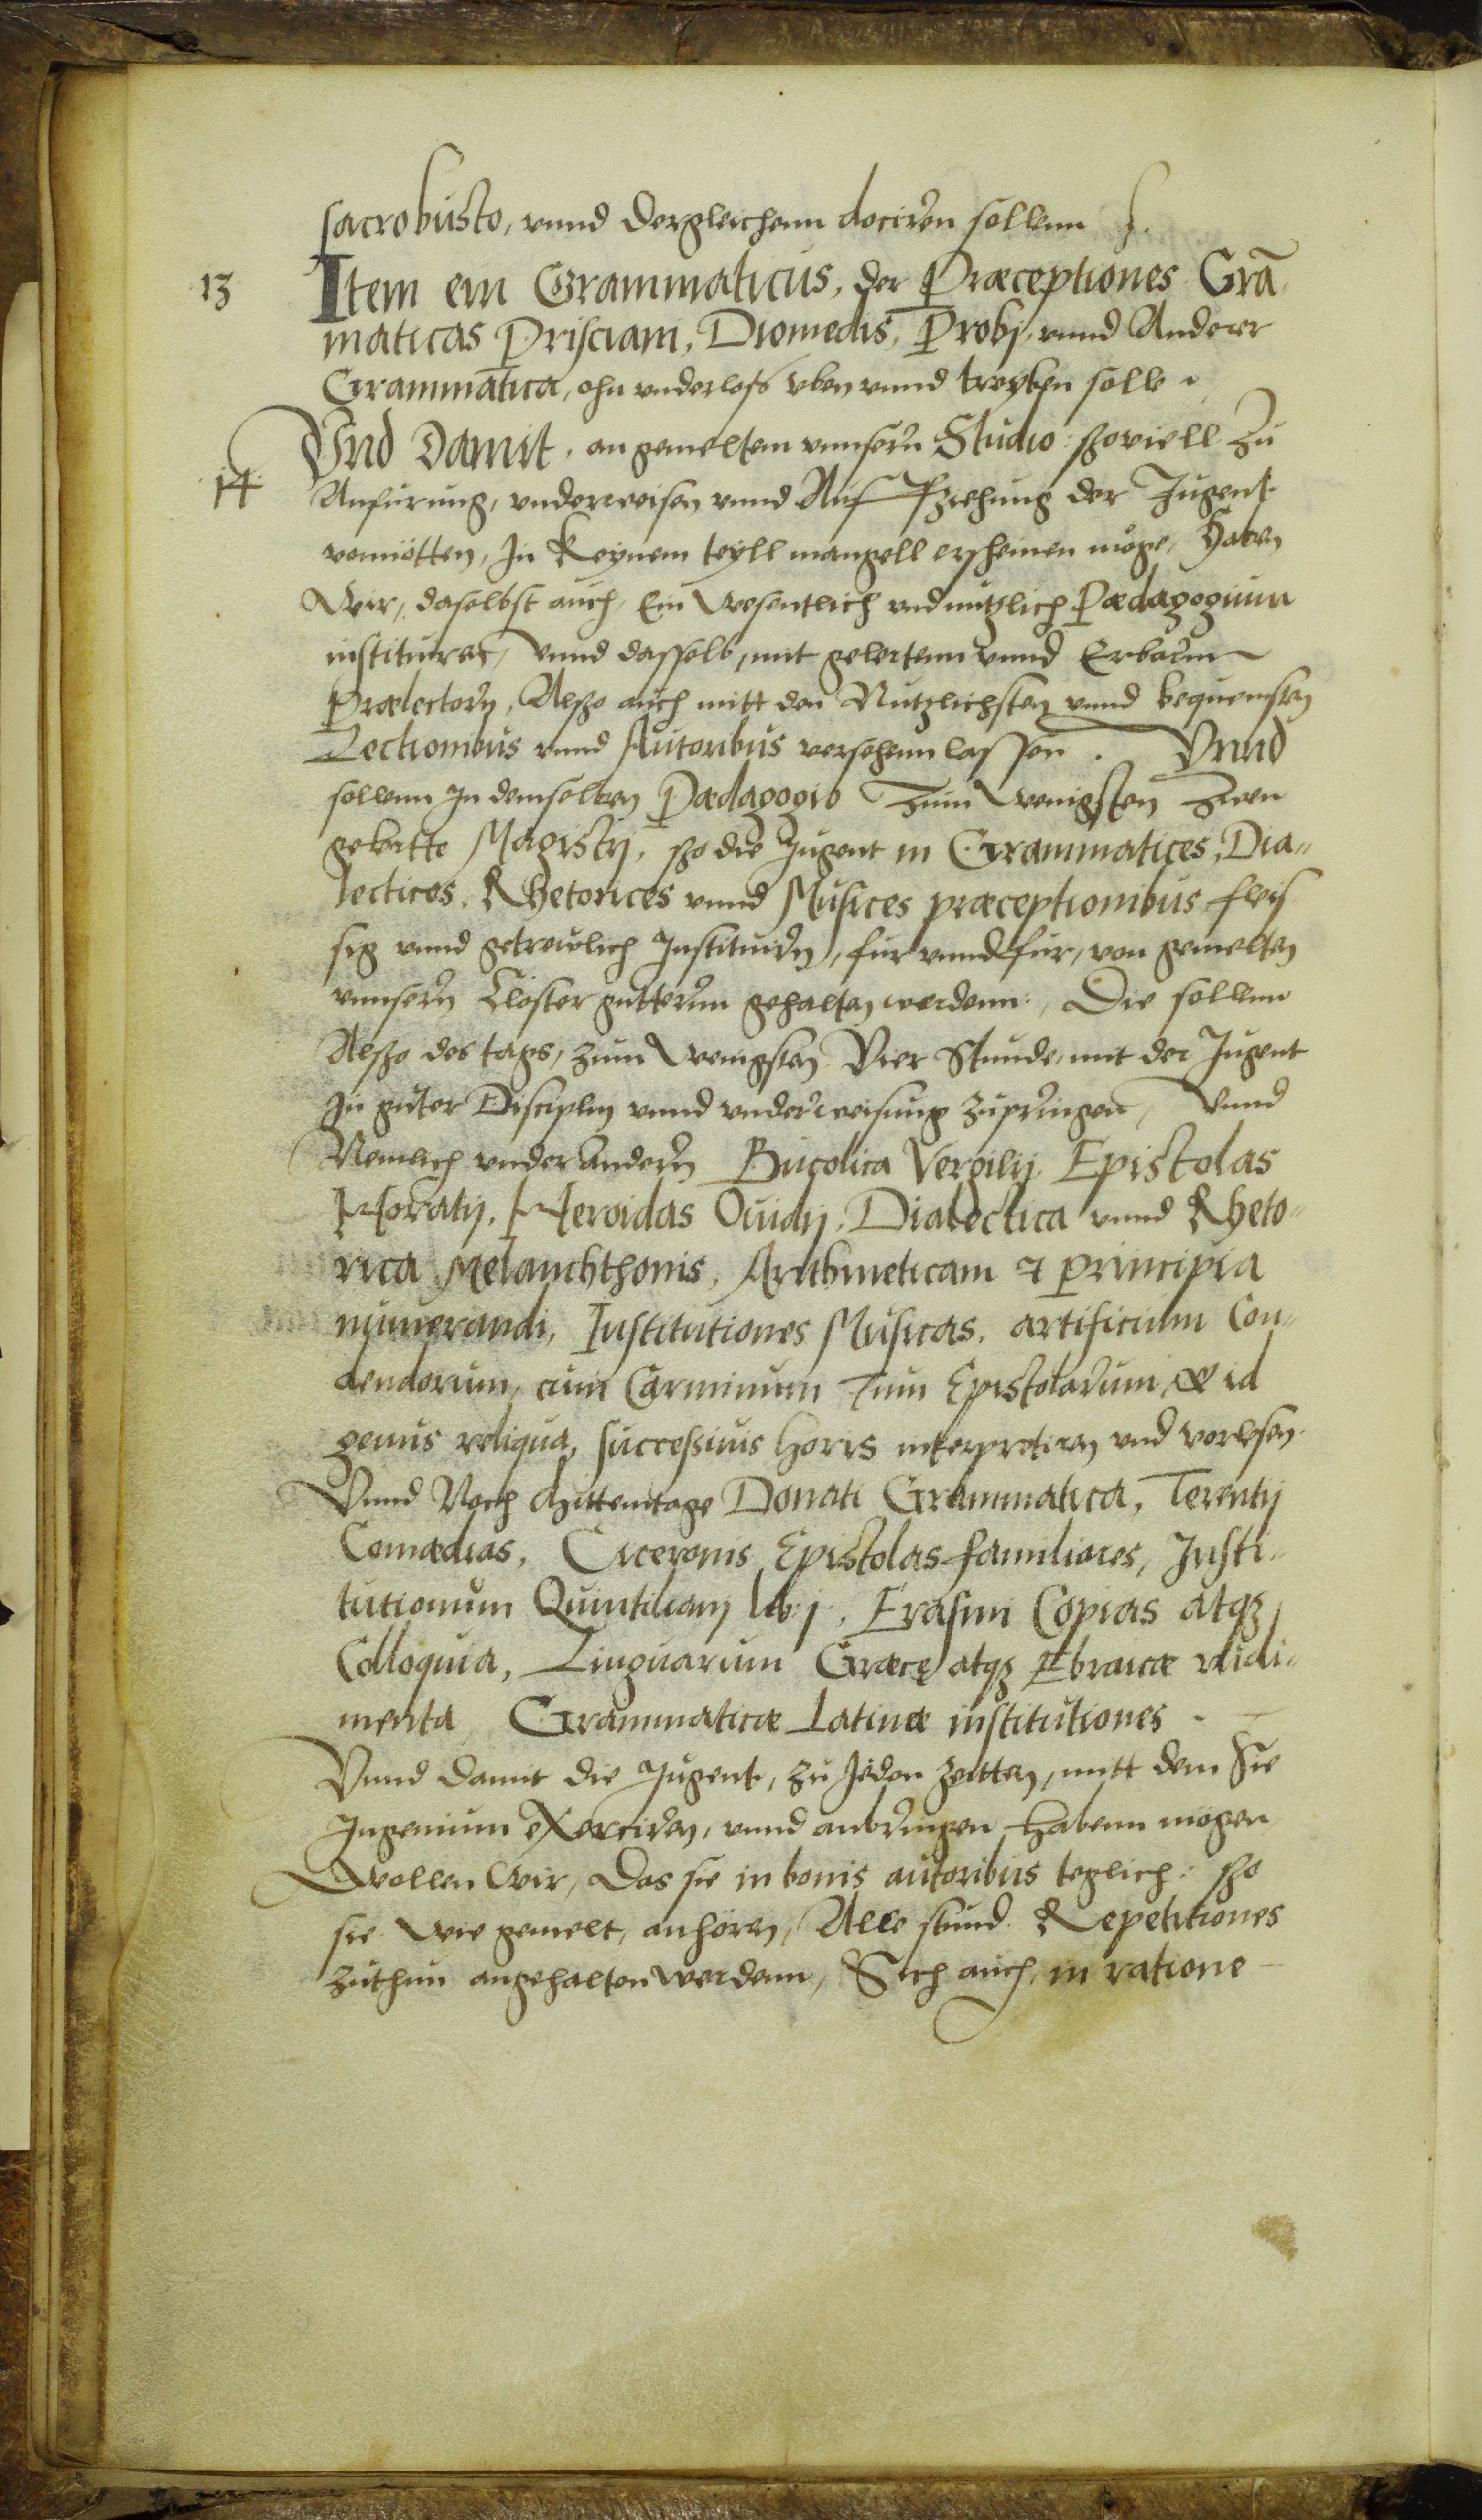 sacrobusto, vnnd dergleichenn dociren sollenn
13 Item ein Grammaticus, der Præceptiones Grã
maticas Prisciani, Diomedis, Probj, vnnd Anderer
Grammatica, ohn vnderloß vben vnnd treyben solle.
Vnd Damit, an gemeltem vnnserñ Studio: szoviell zu
14 Anfurung, vnderweisen vnnd Aufftziehung der Jugent
vonnötten, In Keynem teyll mangell erscheinen möge, Haben
Wir, daselbst auch, Ein wesentlich vnd nutzlich Pædagogium
instituiret, Vnnd dasselb, mit gelertenn vnnd Erbarñ
Prælectorñ, Alszo auch mitt den Nutzlichsten vnnd bequemsten
Lectionibus vnnd Autoribus versehenn lassen. Vnnd
sollenn In demselben Pædagogio zum Wenigsten zwen
gelartte Magistrj, szo die Jugent in Grammatices, Dia„
lectices, Rhetorices vnnd Musices præceptionibus fleis
sig vnnd getrewlich Instituirñ, fur vnnd fur, von gemelten
vnnserñ Closter guttern gehalten werdenn, Die sollenn
Alszo des tags, zum Wenigsten Vier Stunde, mit der Jugent
In guter Disciplin vnnd vnderweisung zupringen, Vnnd
Nemlich vnder anderñ Bucolica Vergilij, Epistolas
Horatij, Heroidas Ouidij, Dialectica vnnd Rheto„
rica Melanchthonis, Arithmeticam & principia
numerandi, Institutiones Musicas, artificium Con„
dendorum, cum Carminum Tum Epistolarum, & id
genus reliqua, successiuis horis interpretiren vnd vorlesen
Vnnd Noch Mittemtage Donati Grammatica, Terentij
Comædias, Ciceronis Epistolas familiares, Insti„
tutionum Quintilianj lib: j. Erasmi Copias atqȝ
Colloquia, Linguarum Græce atqȝ Ebraicæ rudi„
menta, Grammaticæ Latinæ institutiones.
Vnnd damit die Jugent, zu Jeden zeitten, mitt dem Sie
Ingenium exerciren, vnnd anbringen habenn mögen
Wollen Wir, Das sie in bonis autoribus teglich: szo
sie wie gemelt, anhören, Alle stund Repetitiones
zuthun angehalten werdenn, Sich auch in ratione